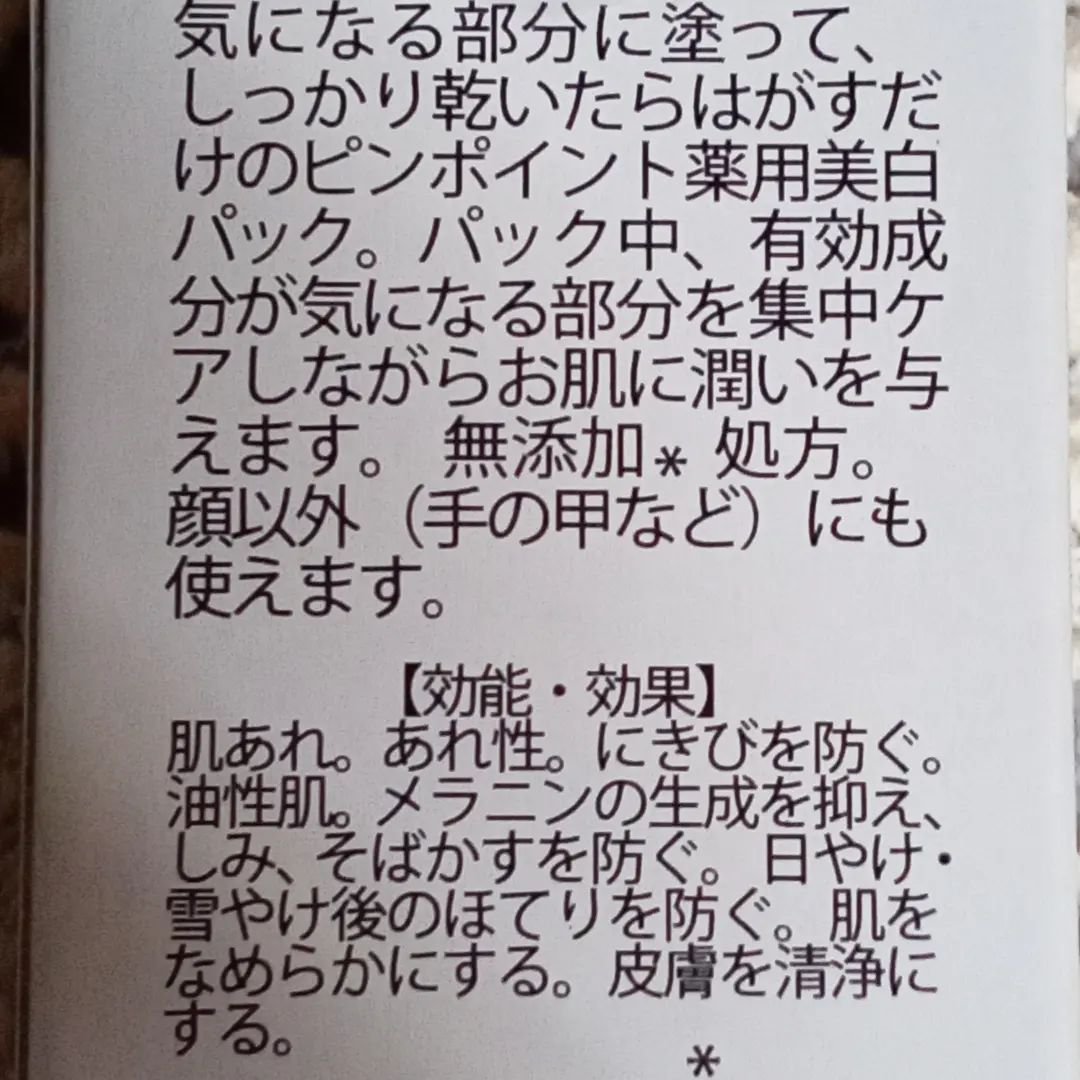 気になる部分に塗って、
しっかり乾いたらはがすだ
けのピンポイント薬用美白
パック。パック中、有効成
分が気になる部分を集中ケ
アしながらお肌に潤いを与
えます。 無添加* 処方。
顔以外（手の甲など）にも
使えます。
【効能・効果】
肌あれ。あれ性。にきびを防ぐ。
油性肌。メラニンの生成を抑え、
しみ、そばかすを防ぐ。日やけ・
雪やけ後のほてりを防ぐ。肌を
なめらかにする。皮膚を清浄に
する。
*